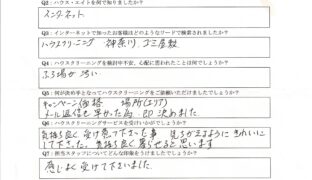 Q2：ハウス・エイトを何で知りましたか？
インターネット
Q3：インターネットで知ったお客様はどのようなワードで検索されましたか？
ハウスクリーニング 神奈川 ゴミ屋敷
Q4：ハウスクリーニングを検討中不安、心配に思われたことは何でしょうか？
ふろ場が汚い
Q5：何が決め手となってハウスクリーニングをご依頼いただけましたでしょうか？
キャンペーン価格 場所(エリア)
メール返信も早かった為 即決めました
Q6：ハウスクリーニングサービスを受けいかがでしたでしょうか？
気持ち良く受け答え下さった事 見ちがえるようにきれいに
して下さった。気持ち良く暮らせると思います
Q7：担当スタッフについてどんな印象をうけましたでしょうか？
感じよく受けて下さいました